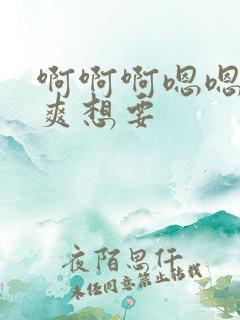 啊啊啊嗯嗯
爽想要
夜陌思仟
未经同意禁止转载